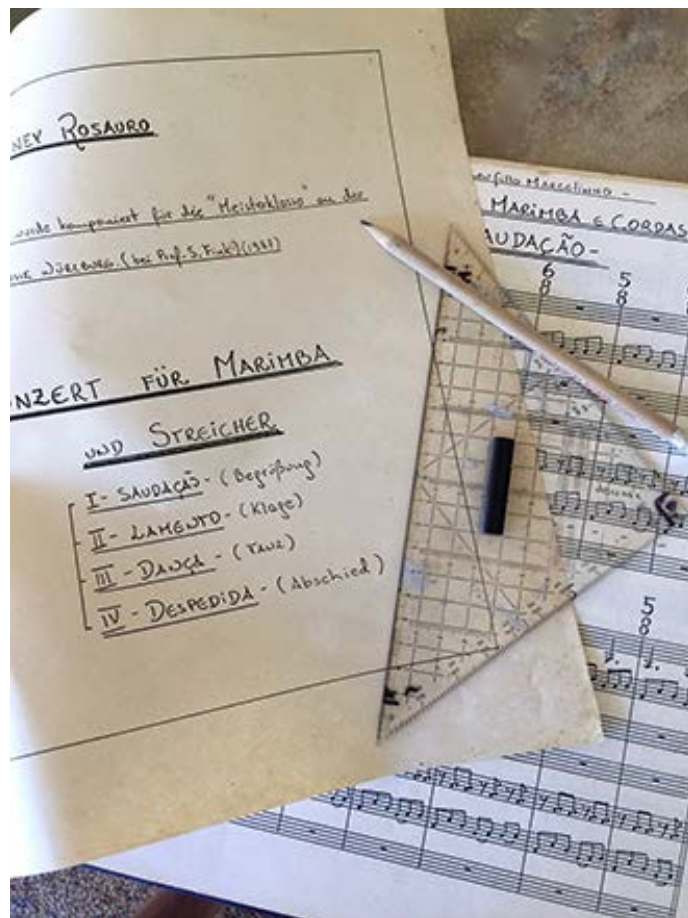 NEY ROSAURO
wurde komponiert für die "Meisterklasse" an der
WÜRZBURG. (bei Prof. S. Fink) (1987)
NZERT FÜR MARIMBA
UND STREICHER
I - SAUDAÇÃO - (Begrüßung)
II - LAMENTO - (Klage)
III - DANÇA - (TANZ)
IV - DESPEDIDA - (Abschied)
MARCELINHO -
MARIMBA E CORDAS
AUDAÇÃO -
6
8
5
8
5
8